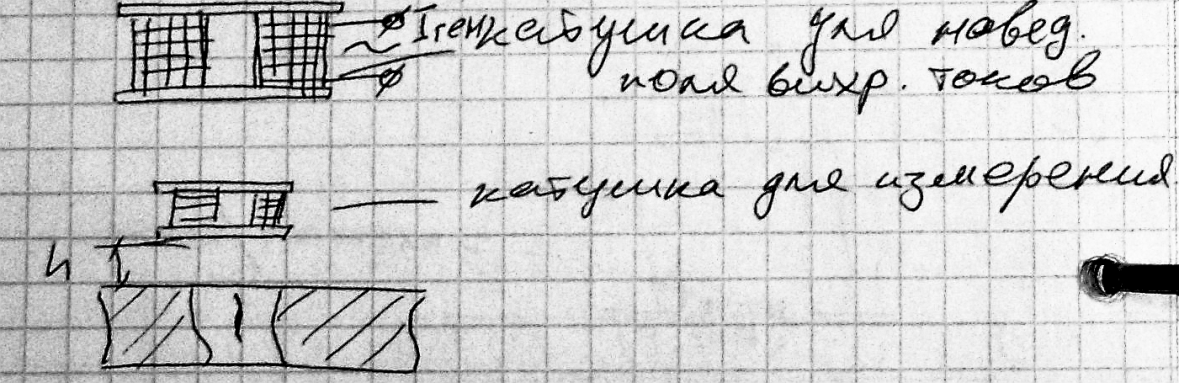 Iген катушка для навед.
~
поля вихр. токов
катушка для измерения
h